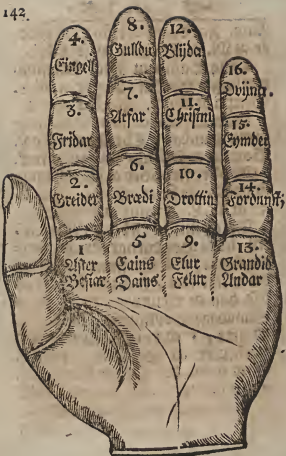 142
4.
Eingell
3.
Fridar
2.
Greider
1
Aster
Bestiar
8.
Gulldu
7.
Arfar
6.
Brædi
5
Cains
Dains
12.
Blijda
11.
Christni
10.
Drottin
9.
Elur
Felur
16.
Dvijna.
15.
Eymder
14.
Fordunst;
13.
Grandid
Andar